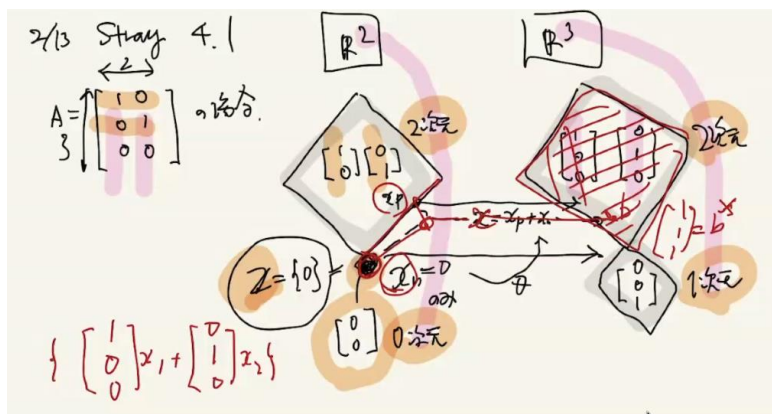 2/13 Strang 4.1
R²
R³
2
A = [1 0
0 1
0 0] の場合.
3
[1
0] [0
1]
2次元
[1
0
0] [0
1
0]
2次元
xp
x = xp + xn
b
[1
1
1] = b
Z = {0}
xn = 0
のみ
0
[0
0
1]
1次元
[0
0]
0次元
{ [1
0
0] x₁ + [0
1
0] x₂ }